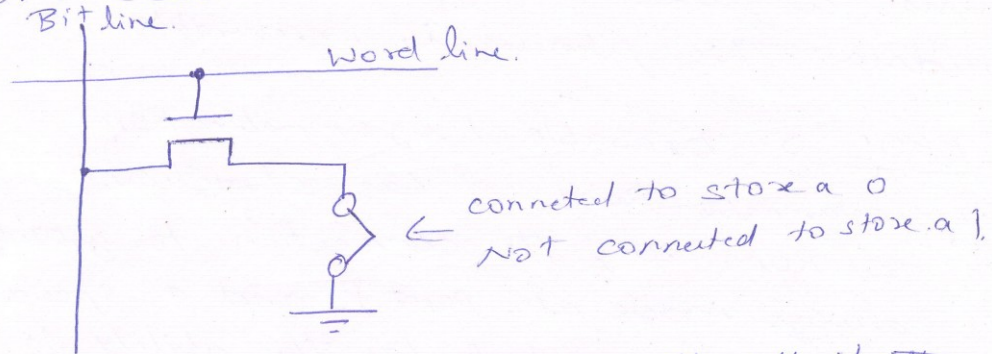 Bit line.
Word line.
conneted to store a 0
Not connected to store a 1.